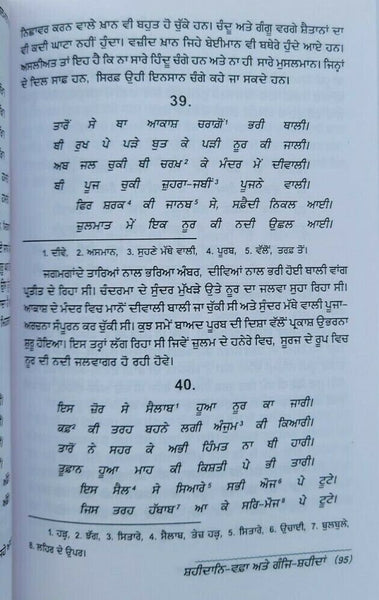 ਨਿਛਾਵਰ ਕਰਨ ਵਾਲੇ ਖ਼ਾਨ ਵੀ ਬਹੁਤ ਹੋ ਚੁੱਕੇ ਹਨ। ਚੰਦੂ ਅਤੇ ਗੰਗੂ ਵਰਗੇ ਸ਼ੈਤਾਨਾਂ ਦਾ
ਵੀ ਕਦੀ ਘਾਟਾ ਨਹੀਂ ਹੁੰਦਾ। ਵਜ਼ੀਦ ਖ਼ਾਨ ਜਿਹੇ ਬੇਈਮਾਨ ਵੀ ਬਥੇਰੇ ਹੁੰਦੇ ਆਏ ਹਨ।
ਅਸਲੀਅਤ ਤਾਂ ਇਹ ਹੈ ਕਿ ਨਾ ਸਾਰੇ ਹਿੰਦੂ ਚੰਗੇ ਹਨ ਅਤੇ ਨਾ ਹੀ ਸਾਰੇ ਮੁਸਲਮਾਨ। ਜਿਨ੍ਹਾਂ
ਦੇ ਦਿਲ ਸਾਫ਼ ਹਨ, ਸਿਰਫ਼ ਉਹੀ ਇਨਸਾਨ ਚੰਗੇ ਕਹੇ ਜਾ ਸਕਦੇ ਹਨ।
39.
ਤਾਰੋਂ ਸੇ ਥਾ ਆਕਾਸ਼ ਚਰਾਗ਼ੋਂ¹ ਭਰੀ ਥਾਲੀ।
ਥੀ ਰੁਖ਼ ਪੇ ਪੜੇ ਬੁਤ ਕੇ ਪੜੀ ਨੂਰ ਕੀ ਜਾਲੀ।
ਅਬ ਜਲ ਚੁਕੀ ਥੀ ਚਰਖ਼² ਕੇ ਮੰਦਰ ਮੇਂ ਦੀਵਾਲੀ।
ਥੀ ਪੂਜ ਚੁਕੀ ਜ਼ੁਹਰਾ-ਜਬੀਂ³ ਪੂਜਨੇ ਵਾਲੀ।
ਫਿਰ ਸ਼ਰਕ⁴ ਕੀ ਜਾਨਬ⁵ ਸੇ, ਸਫ਼ੈਦੀ ਨਿਕਲ ਆਈ।
ਜ਼ੁਲਮਾਤ ਮੇਂ ਇਕ ਨੂਰ ਕੀ ਨਦੀ ਉਛਲ ਆਈ।
1. ਦੀਵੇ, 2. ਅਸਮਾਨ, 3. ਸੁਹਣੇ ਮੱਥੇ ਵਾਲੀ, 4. ਪੂਰਬ, 5. ਵੱਲੋਂ, ਤਰਫ਼ ਤੋਂ।
ਜਗਮਗਾਂਦੇ ਤਾਰਿਆਂ ਨਾਲ ਭਰਿਆ ਅੰਬਰ, ਦੀਵਿਆਂ ਨਾਲ ਭਰੀ ਹੋਈ ਥਾਲੀ ਵਾਂਗ
ਪ੍ਰਤੀਤ ਦੇ ਰਿਹਾ ਸੀ। ਚੰਦਰਮਾ ਦੇ ਸੁੰਦਰ ਮੁੱਖੜੇ ਉਤੇ ਨੂਰ ਦਾ ਜਲਵਾ ਸੁਹਾ ਰਿਹਾ ਸੀ।
ਆਕਾਸ਼ ਦੇ ਮੰਦਰ ਵਿਚ ਮਾਨੋਂ ਦੀਵਾਲੀ ਬਾਲੀ ਜਾ ਚੁੱਕੀ ਸੀ ਅਤੇ ਸੁੰਦਰ ਮੱਥੇ ਵਾਲੀ ਪੂਜਾ-
ਅਰਚਨਾ ਸੰਪੂਰਨ ਕਰ ਚੁੱਕੀ ਸੀ। ਕੁਝ ਸਮੇਂ ਬਾਅਦ ਪੂਰਬ ਦੀ ਦਿਸ਼ਾ ਵੱਲੋਂ ਪ੍ਰਕਾਸ਼ ਉਭਰਨਾ
ਸ਼ੁਰੂ ਹੋਇਆ। ਇਸ ਤਰ੍ਹਾਂ ਲੱਗ ਰਿਹਾ ਸੀ ਜਿਵੇਂ ਜ਼ੁਲਮ ਦੇ ਹਨੇਰੇ ਵਿਚ, ਸੂਰਜ ਦੇ ਰੂਪ ਵਿਚ
ਨੂਰ ਦੀ ਨਦੀ ਜਲਵਾਗਰ ਹੋ ਰਹੀ ਹੋਵੇ।
40.
ਇਸ ਜ਼ੋਰ ਸੇ ਸੈਲਾਬ¹ ਹੂਆ ਨੂਰ ਕਾ ਜਾਰੀ।
ਕਫ਼² ਕੀ ਤਰਹ ਬਹਨੇ ਲਗੀ ਅੰਜੁਮ³ ਕੀ ਕਿਆਰੀ।
ਤਾਰੋਂ ਨੇ ਸਹਰ ਕੇ ਅਭੀ ਹਿੰਮਤ ਨਾ ਥੀ ਹਾਰੀ।
ਤੂਫ਼ਾਨ ਹੂਆ ਮਾਹ ਕੀ ਕਿਸ਼ਤੀ ਪੇ ਭੀ ਤਾਰੀ।
ਇਸ ਸੈਲ⁴ ਸੇ ਸਿਆਰੇ⁵ ਸਭੀ ਔਜ⁶ ਪੇ ਟੂਟੇ।
ਜਿਸ ਤਰਹ ਹੱਬਾਬ⁷ ਆ ਕੇ ਸਰਿ-ਮੌਜ⁸ ਪੇ ਟੂਟੇ।
1. ਹੜ੍ਹ, 2. ਝੱਗ, 3. ਸਿਤਾਰੇ, 4. ਸੈਲਾਬ, ਤੇਜ਼ ਹੜ੍ਹ, 5. ਸਿਤਾਰੇ, 6. ਉਚਾਈ, 7. ਬੁਲਬੁਲੇ,
8. ਲਹਿਰ ਦੇ ਉਪਰ।
ਸ਼ਹੀਦਾਨਿ-ਵਫ਼ਾ ਅਤੇ ਗੰਜਿ-ਸ਼ਹੀਦਾਂ (95)